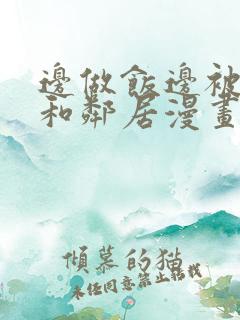 邊做飯邊被
和鄰居漫畫
傾慕的猫
未任同意禁止轉載